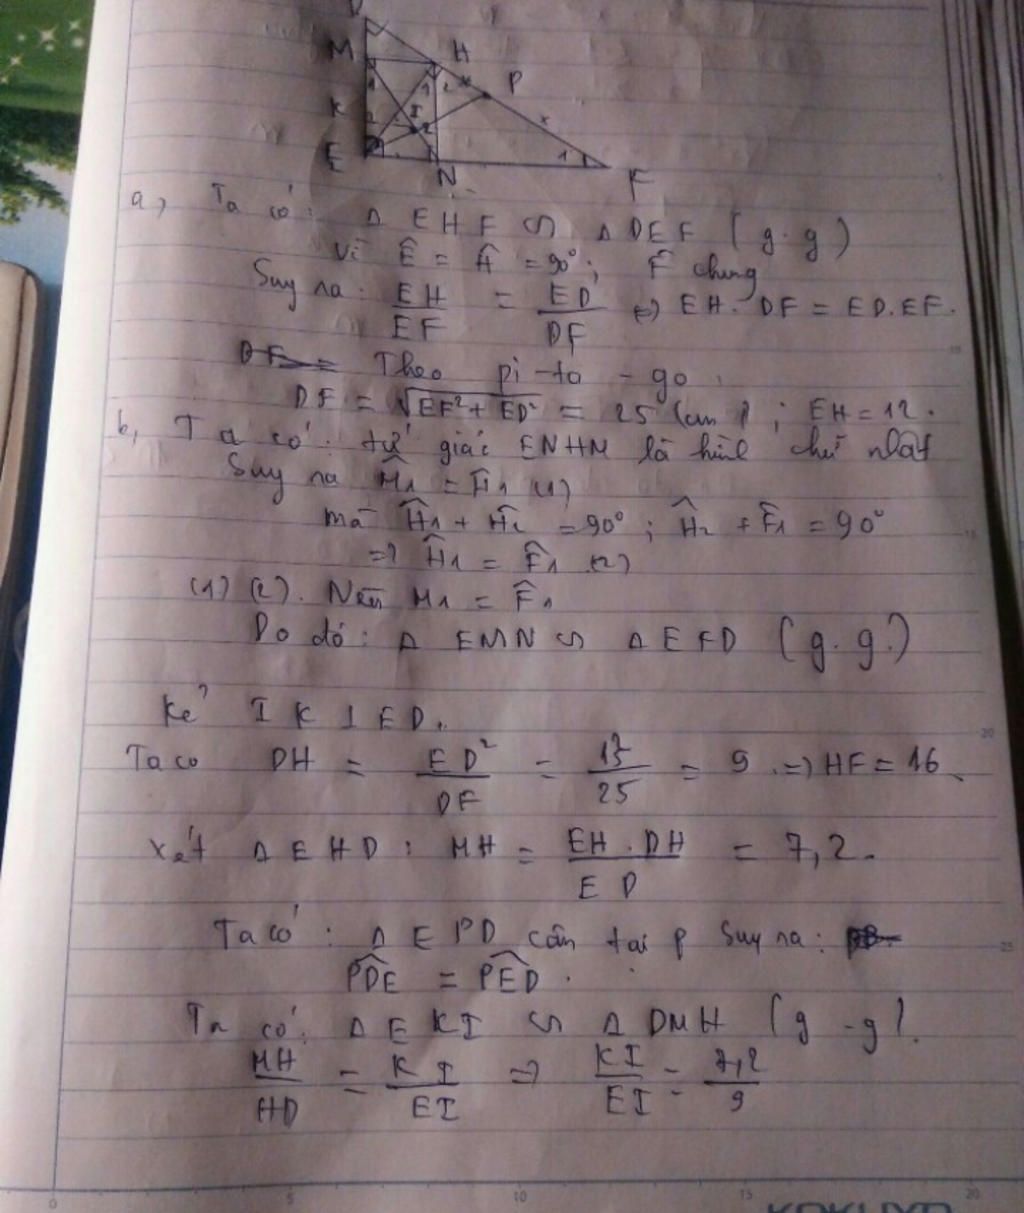 M
H
P
K
I
E
N
F
a, Ta có: Δ EHF ∽ Δ DEF (g.g)
Vì Ê = Ĥ = 90°; F̂ chung
Suy ra: EH/EF = ED/DF ⇔ EH. DF = ED.EF.
Theo pi-ta-go
DF = √EF²+ED² = 25 (cm); EH = 12.
b, Ta có: tứ giác ENHM là hình chữ nhật
Suy ra M̂1 = Ĥ1 (1)
mà Ĥ1 + Ĥ2 = 90°; Ĥ2 + F̂1 = 90°
=> Ĥ1 = F̂1 (2)
(1) (2). Nên M1 = F̂1
Do đó: Δ EMN ∽ Δ EFD (g.g.)
Kẻ IK ⊥ ED.
Ta có DH = ED²/DF = 15²/25 = 9 .=> HF = 16
Xét Δ EHD: MH = EH.DH/ED = 7,2.
Ta có: Δ EPD cân tại P Suy ra:
PDE = PED.
Ta có: Δ EKI ∽ Δ DMH (g-g).
MH/HD = KI/EI => KI/EI = 7,2/9
0 5 10 15 20
KOKUYO